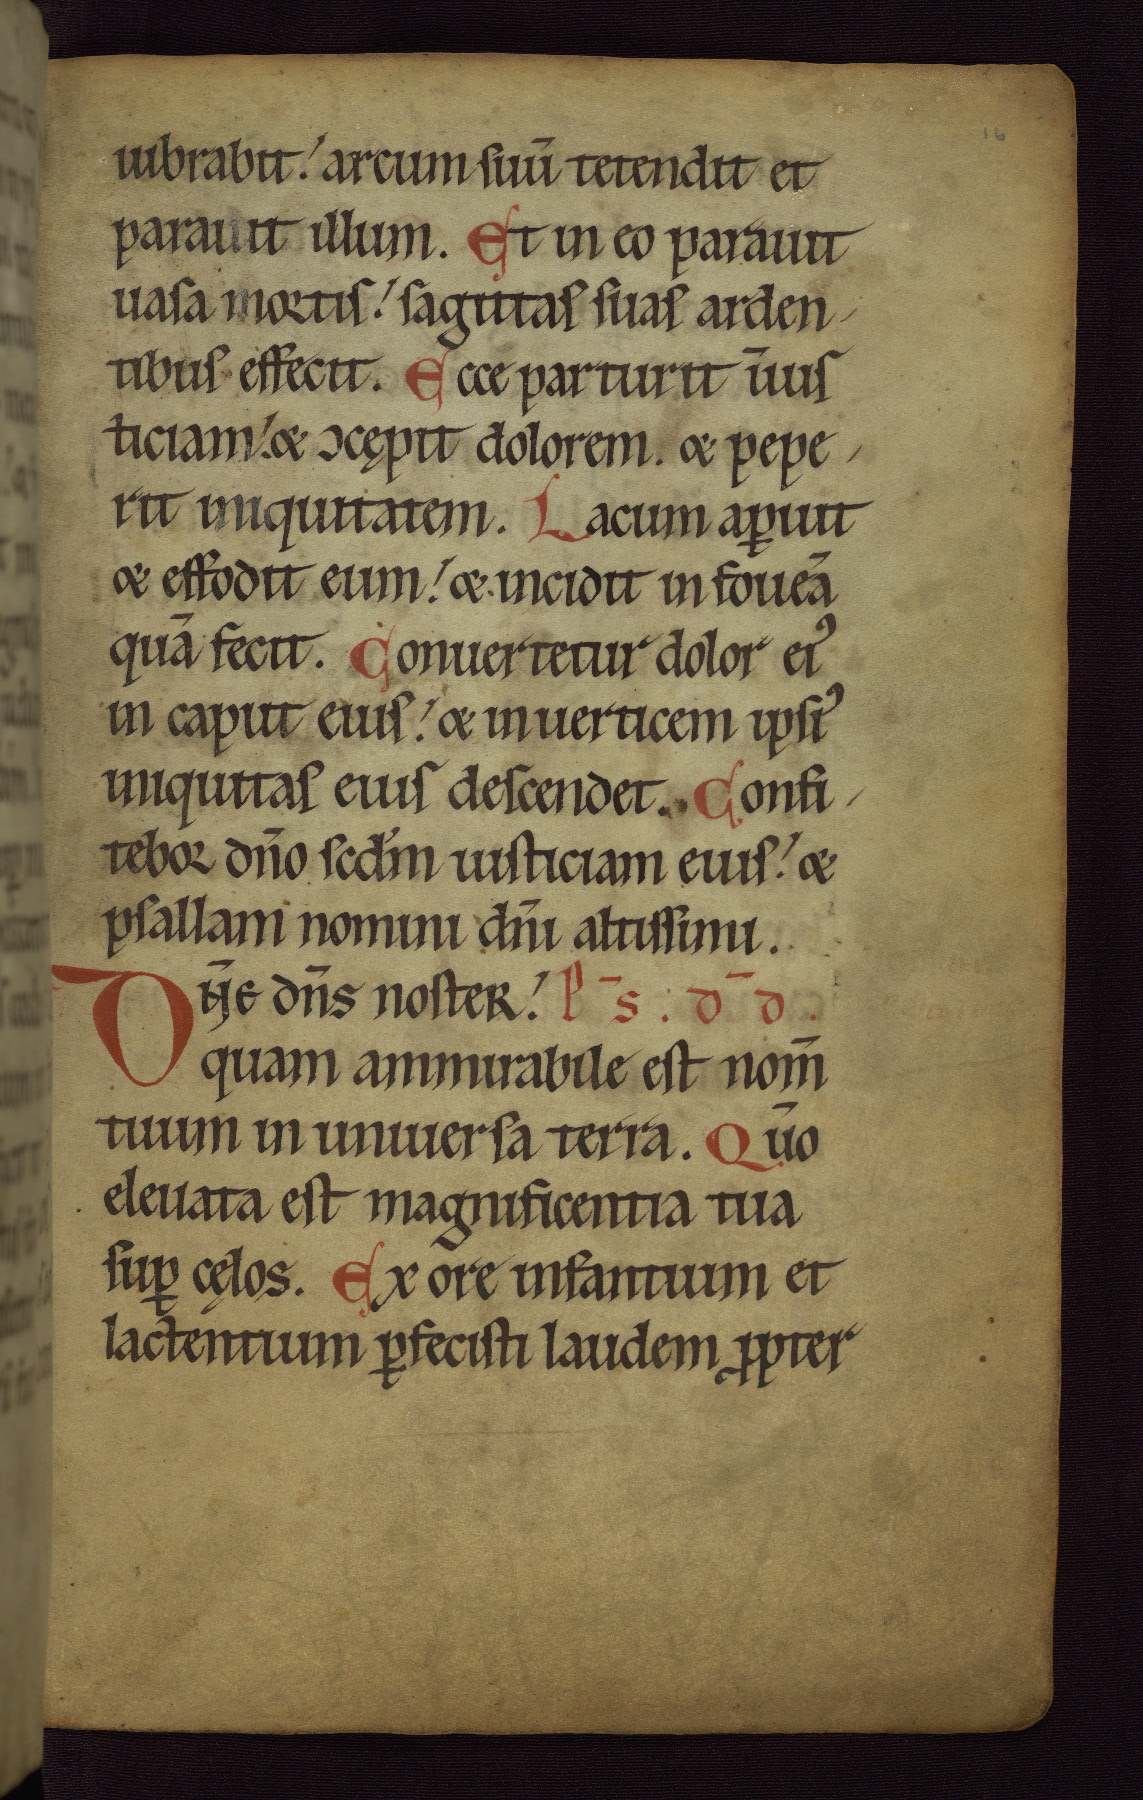 16
uibrabit! arcum suū tetendit et
parauit illum. Et in eo parauit
uasa mortis! sagittas suas arden-
tibus effecit. Ecce parturit īius
ticiam! & ɔcępit dolorem. & pepe-
rit iniquitatem. Lacum aꝑuit
& effodit eum! & incidit in foueā
quā fecit. Conuertetur dolor eiꝰ
in caput eius! & in uerticem ipsiꝰ
iniquitas eius descendet. Confi-
tebor dn̄o scd̄m iusticiam eius! &
psallam nomini dn̄i altissimi.
Dn̄e dn̄s noster! Ps̄: d̄d.
quam ammirabile est nom̄
tuum in uniuersa terra. Qūo
eleuata est magnificentia tua
suꝑ cęlos. Ex ore infantium et
lactentium ꝑfecisti laudem ꝓpter